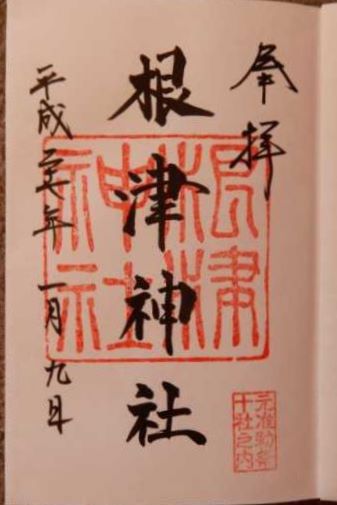 奉拝
根津神社
平成二七年 一月九日
根津
神社
元准勅祭
十社之内